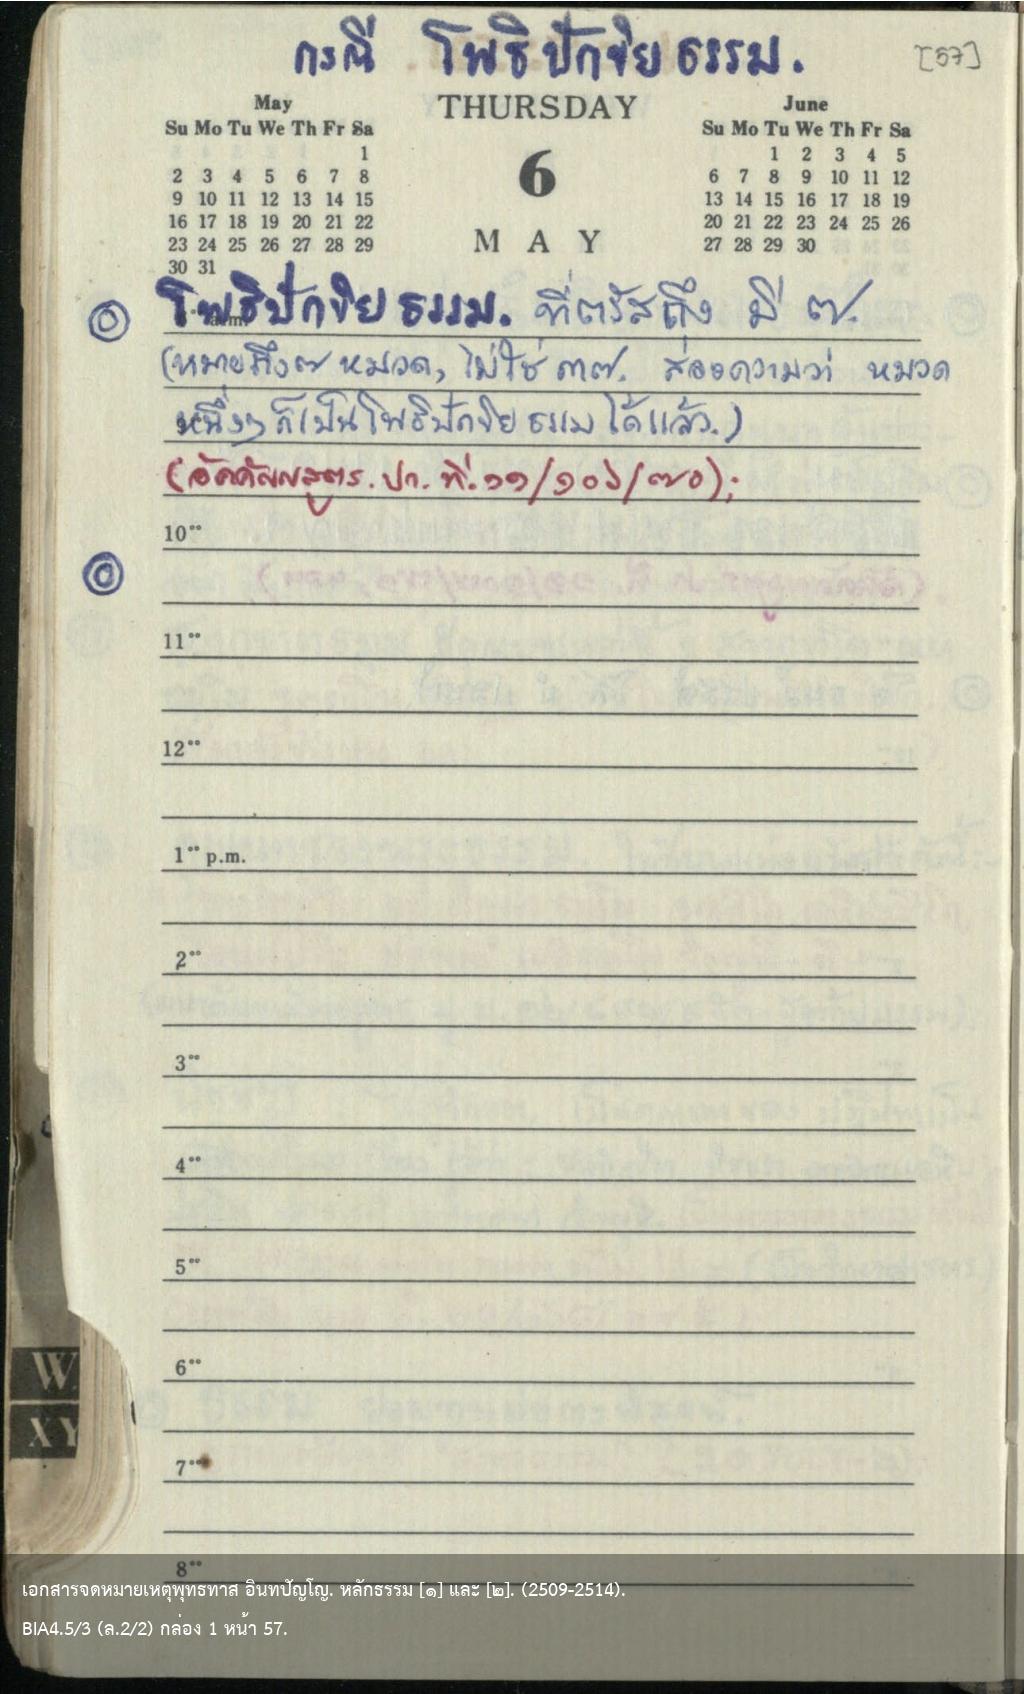 กรณี โพธิปักขิยธรรม. [57]
May THURSDAY June
Su Mo Tu We Th Fr Sa
1
2 3 4 5 6 7 8
9 10 11 12 13 14 15
16 17 18 19 20 21 22
23 24 25 26 27 28 29
30 31
6
MAY
Su Mo Tu We Th Fr Sa
1 2 3 4 5
6 7 8 9 10 11 12
13 14 15 16 17 18 19
20 21 22 23 24 25 26
27 28 29 30
โพธิปักขิยธรรม. ที่ตรัสถึง มี ๗.
(หมายถึง ๗ หมวด, ไม่ใช่ ๓๗. ส่อความว่า หมวด
หนึ่งๆ ก็เป็นโพธิปักขิยธรรมได้แล้ว.)
(อัคคัญญสูตร. ปา. ที. ๑๑/๑๐๖/๗๐);
10⁰⁰
11⁰⁰
12⁰⁰
1⁰⁰ p.m.
2⁰⁰
3⁰⁰
4⁰⁰
5⁰⁰
6⁰⁰
7⁰⁰
8⁰⁰
W
XY
เอกสารจดหมายเหตุพุทธทาส อินทปัญโญ. หลักธรรม [๑] และ [๒]. (2509-2514).
BIA4.5/3 (ล.2/2) กล่อง 1 หน้า 57.